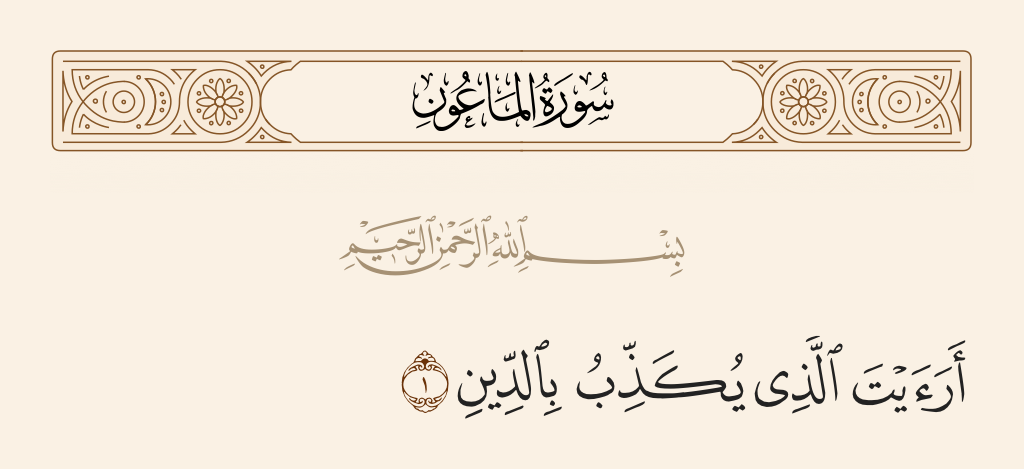 سُورَةُ المَاعُونِ
بِسْمِ ٱللَّهِ ٱلرَّحْمَٰنِ ٱلرَّحِيمِ
أَرَءَيْتَ ٱلَّذِى يُكَذِّبُ بِٱلدِّينِ ١